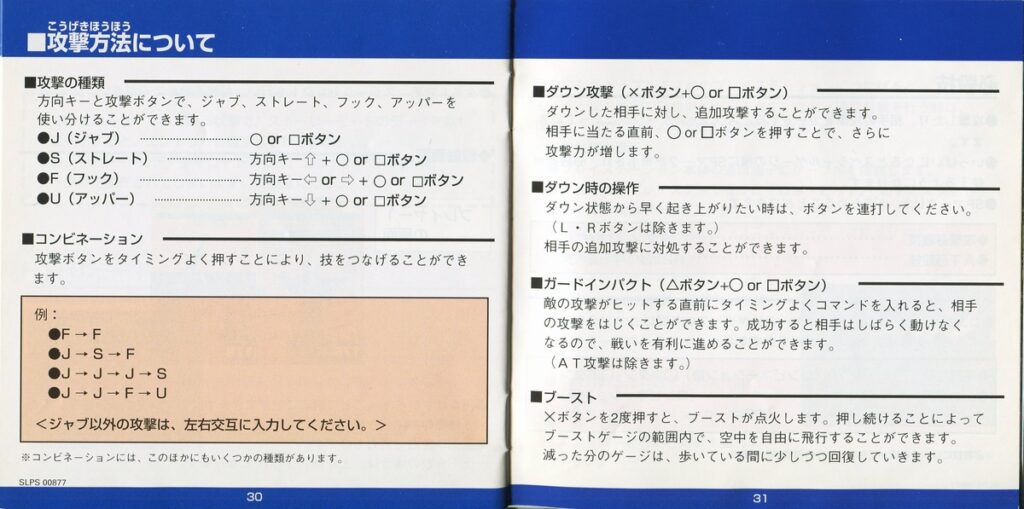 こうげきほうほう
■攻撃方法について
■攻撃の種類
方向キーと攻撃ボタンで、ジャブ、ストレート、フック、アッパーを
使い分けることができます。
●J（ジャブ） ………………… ○ or □ボタン
●S（ストレート） ………………… 方向キー⇧ + ○ or □ボタン
●F（フック） ………………… 方向キー⇦ or ⇨ + ○ or □ボタン
●U（アッパー） ………………… 方向キー⇩ + ○ or □ボタン
■コンビネーション
攻撃ボタンをタイミングよく押すことにより、技をつなげることができ
ます。
例：
●F→F
●J→S→F
●J→J→J→S
●J→J→F→U
＜ジャブ以外の攻撃は、左右交互に入力してください。＞
※コンビネーションには、このほかにもいくつかの種類があります。
SLPS 00877
30
■ダウン攻撃（×ボタン+○ or □ボタン）
ダウンした相手に対し、追加攻撃することができます。
相手に当たる直前、○ or □ボタンを押すことで、さらに
攻撃力が増します。
■ダウン時の操作
ダウン状態から早く起き上がりたい時は、ボタンを連打してください。
（L・Rボタンは除きます。）
相手の追加攻撃に対処することができます。
■ガードインパクト（△ボタン+○ or □ボタン）
敵の攻撃がヒットする直前にタイミングよくコマンドを入れると、相手
の攻撃をはじくことができます。成功すると相手はしばらく動けなく
なるので、戦いを有利に進めることができます。
（AT攻撃は除きます。）
■ブースト
×ボタンを2度押すと、ブーストが点火します。押し続けることによって
ブーストゲージの範囲内で、空中を自由に飛行することができます。
減った分のゲージは、歩いている間に少しづつ回復していきます。
31